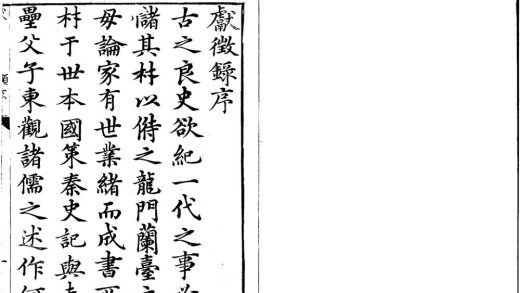 獻徵錄序
古之良史欲紀一代之事必
儲其材以俟之龍門蘭臺
毋論家有世業緒而成書
材于世本國策秦史記與
壘父子東觀諸儒之述作何